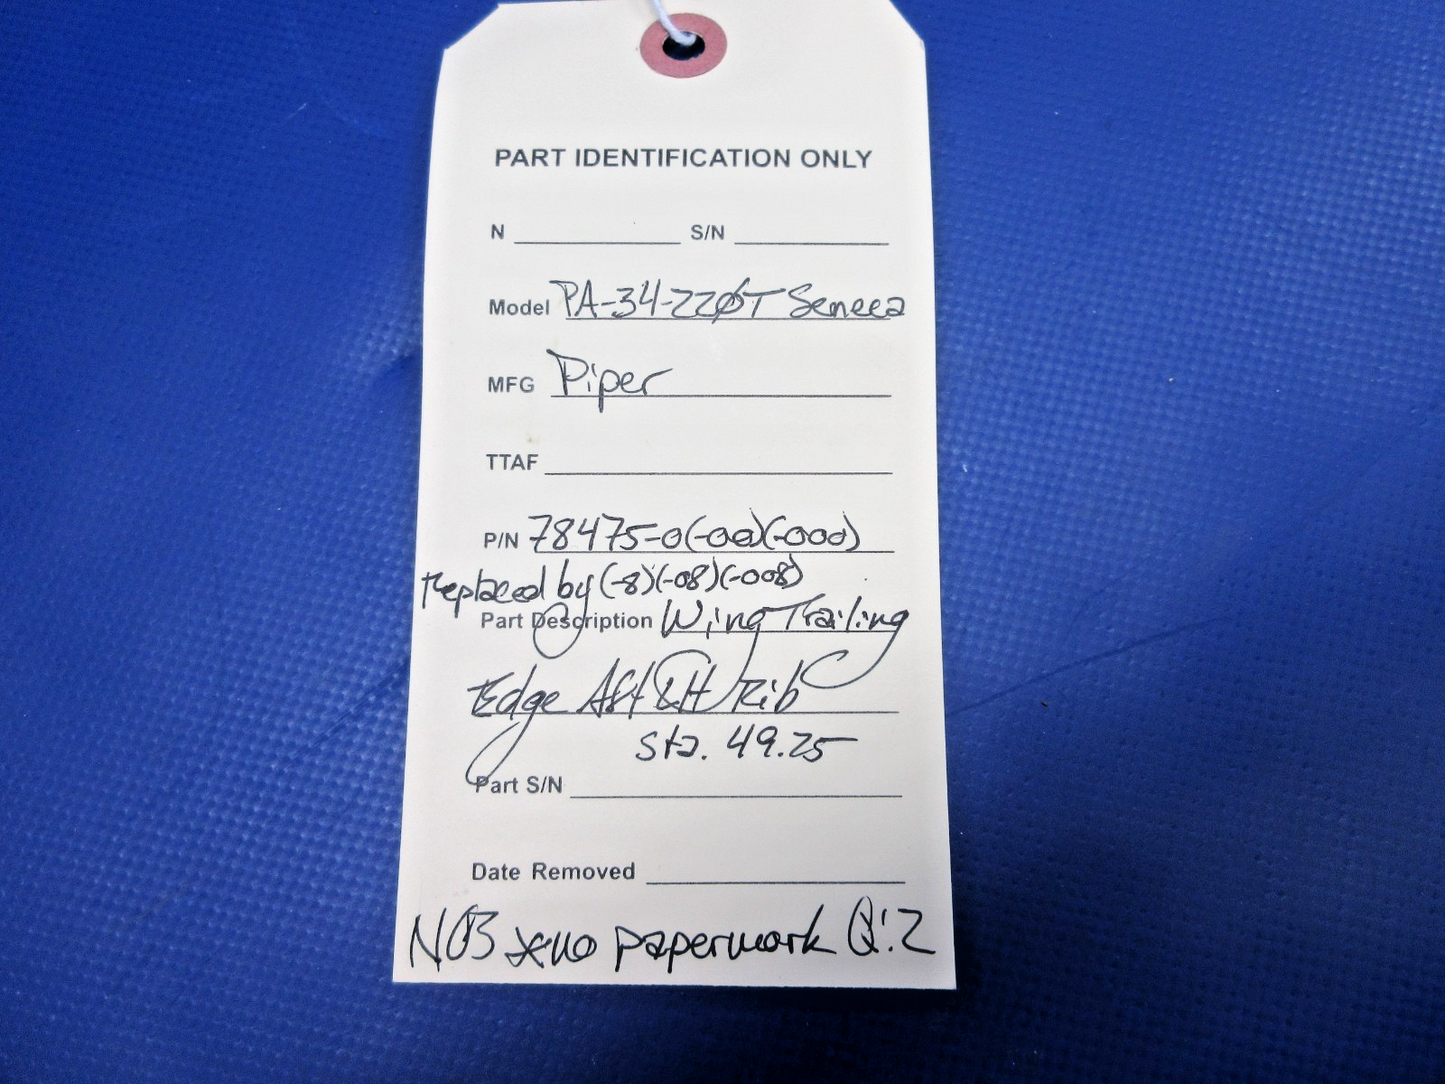 PART IDENTIFICATION ONLY
N S/N
Model PA-34-220T Seneca
MFG Piper
TTAF
P/N 78475-0(-00)(-000)
replaced by (-8)(-08)(-008)
Part Description Wing Trailing
Edge Aft LH Rib
sta. 49.25
Part S/N
Date Removed
NOS *no paperwork Q:2